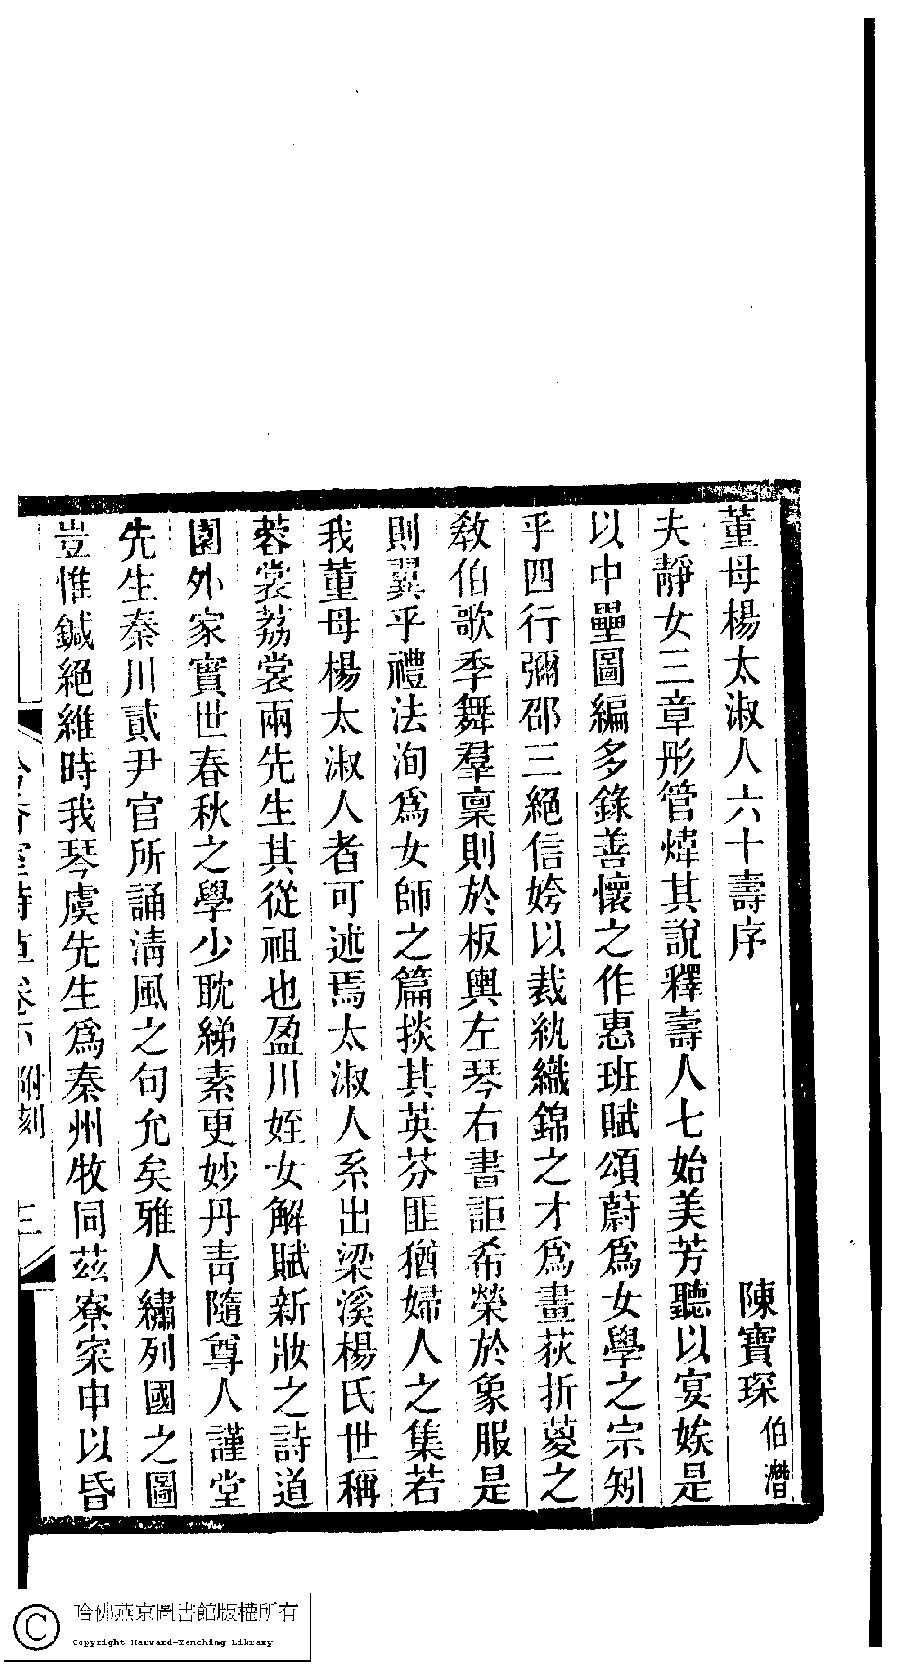 董母楊太淑人六十壽序
陳寶琛伯潛
夫靜女三章彤管煒其說釋壽人七始美芳聽以宴娭是
以中壘圖編多錄善懷之作惠班賦頌蔚爲女學之宗矧
乎四行彌邵三絕信姱以裁紈織錦之才爲畫荻折葼之
教伯歌季舞羣稟則於板輿左琴右書詎希榮於象服是
則翼乎禮法洵爲女師之篇掞其英芬匪猶婦人之集若
我董母楊太淑人者可述焉太淑人系出梁溪楊氏世稱
蓉裳荔裳兩先生其從祖也盈川姪女解賦新妝之詩道
園外家實世春秋之學少耽綈素更妙丹靑隨尊人謹堂
先生秦川貳尹官所誦淸風之句允矣雅人繡列國之圖
豈惟鍼絕維時我琴虞先生爲秦州牧同茲寮寀申以昏
香室詩草卷下附刻
三
哈佛燕京圖書館版權所有
Copyright Harvard-Yenching Library